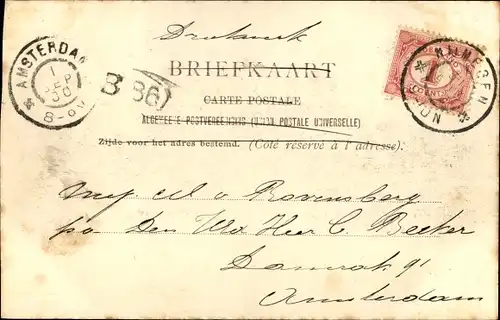 Drukwerk
AMSTERDAM
1 SEP 00
8-9V
B 86
BRIEFKAART
CARTE POSTALE
ALGEMEENE POSTVEREENIGING (UNION POSTALE UNIVERSELLE)
Zijde voor het adres bestemd. (Côté réservé à l'adresse).
1
NIJMEGEN
STATION
Mej v Ravensberg
p/a Den Wd Heer C. Becker
Damrak 91
Amsterdam